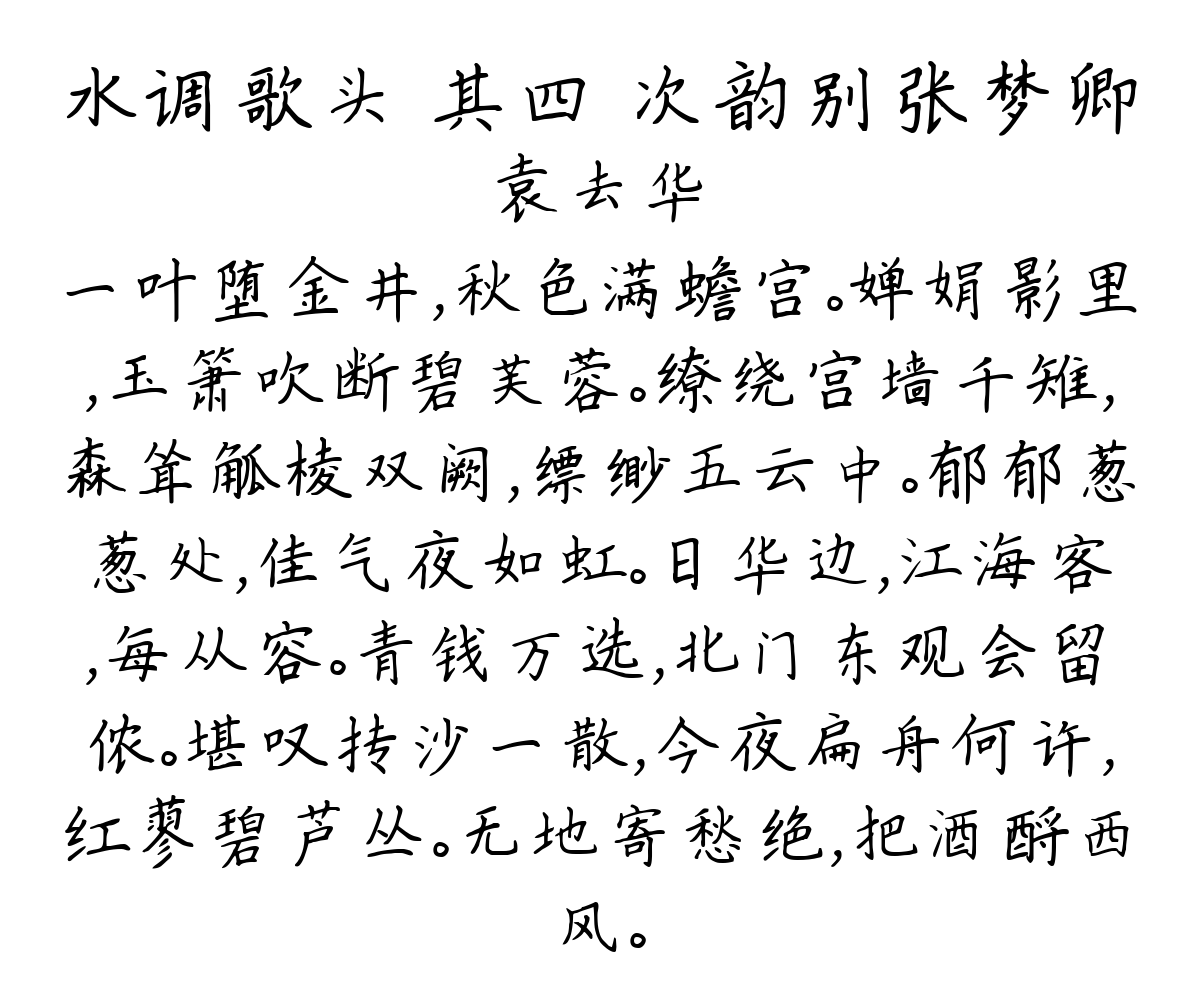 水调歌头 其四 次韵别张梦卿
袁去华
一叶堕金井,秋色满蟾宫。婵娟影里
,玉箫吹断碧芙蓉。缭绕宫墙千雉,
森耸觚棱双阙,缥缈五云中。郁郁葱
葱处,佳气夜如虹。日华边,江海客
,每从容。青钱万选,北门东观会留
侬。堪叹抟沙一散,今夜扁舟何许,
红蓼碧芦丛。无地寄愁绝,把酒酹西
风。